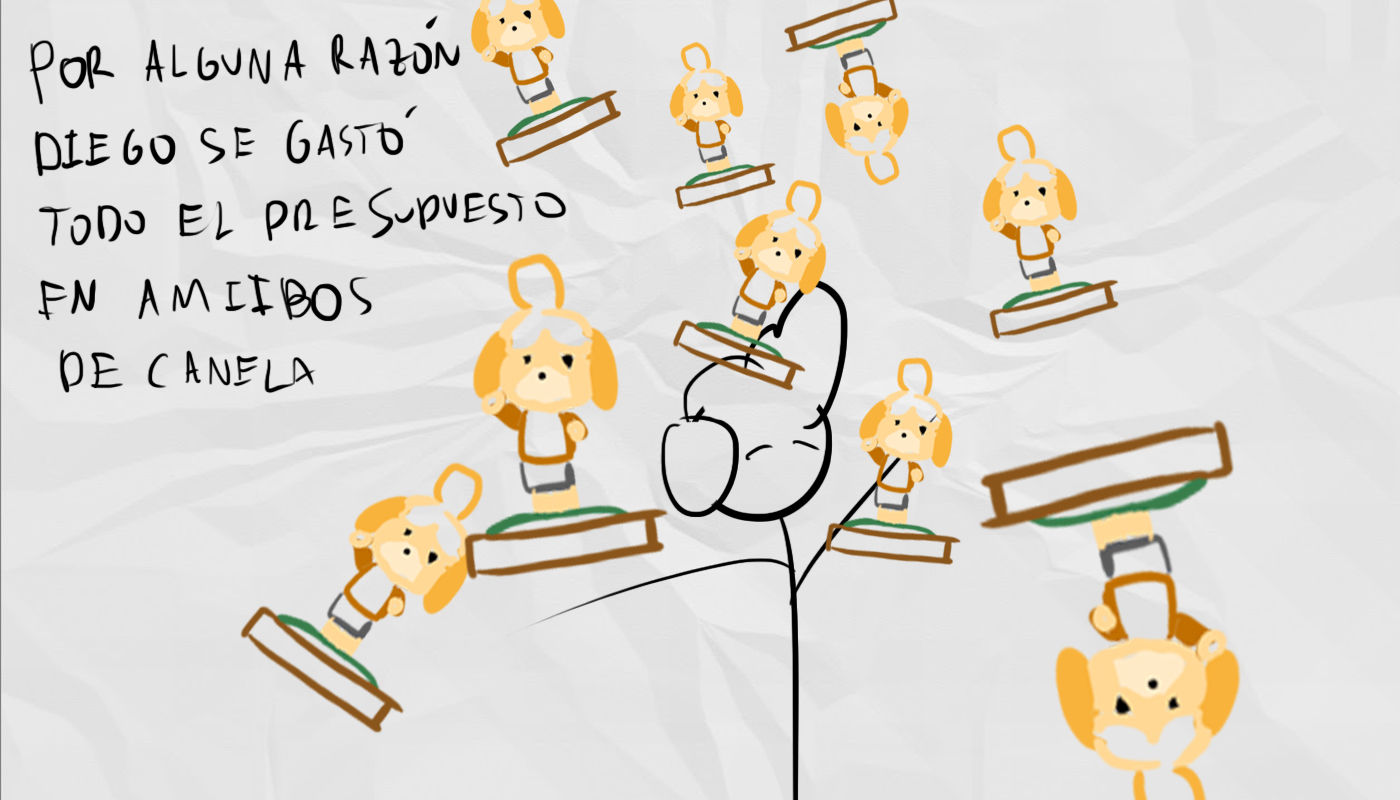 POR ALGUNA RAZÓN
DIEGO SE GASTÓ
TODO EL PRESUPUESTO
EN AMIIBOS
DE CANELA